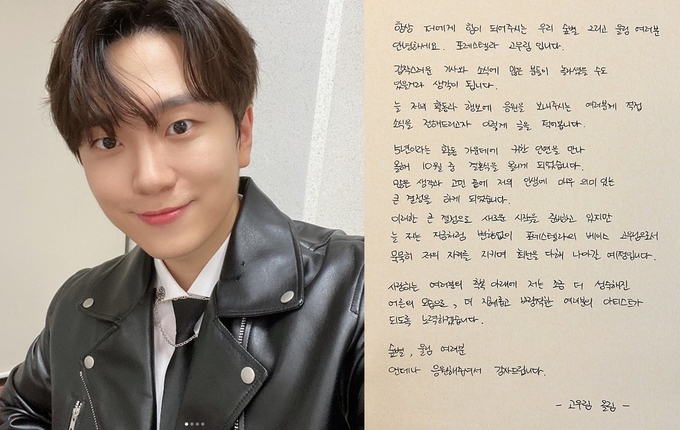 항상 저에게 힘이 되어주시는 우리 숲별 그리고 울림 여러분
안녕하세요. 포레스텔라 고우림 입니다.
갑작스러운 기사와 소식에 많은 분들이 놀라셨을 수도
있을거라 생각이 됩니다.
늘 저의 활동과 행보에 응원을 보내주시는 여러분께 직접
소식을 전해드리고자 이렇게 글을 적어봅니다.
5년이라는 활동 가운데에 귀한 인연을 만나
올해 10월 중 결혼식을 올리게 되었습니다.
많은 생각과 고민 끝에 저의 인생에 아주 의미 있는
큰 결정을 하게 되었습니다.
이러한 큰 결정으로 새로운 시작을 준비하고 있지만
늘 저는 지금처럼 변함없이 포레스텔라의 베이스 고우림으로서
묵묵히 저의 자리를 지키며 최선을 다해 나아갈 예정입니다.
사랑하는 여러분의 축복 아래에 저는 조금 더 성숙해진
어른의 모습으로, 더 진중하고 여러분의 아티스트가
되도록 노력하겠습니다.
숲별, 울림 여러분
언제나 응원해주셔서 감사드립니다.
- 고우림 올림 -